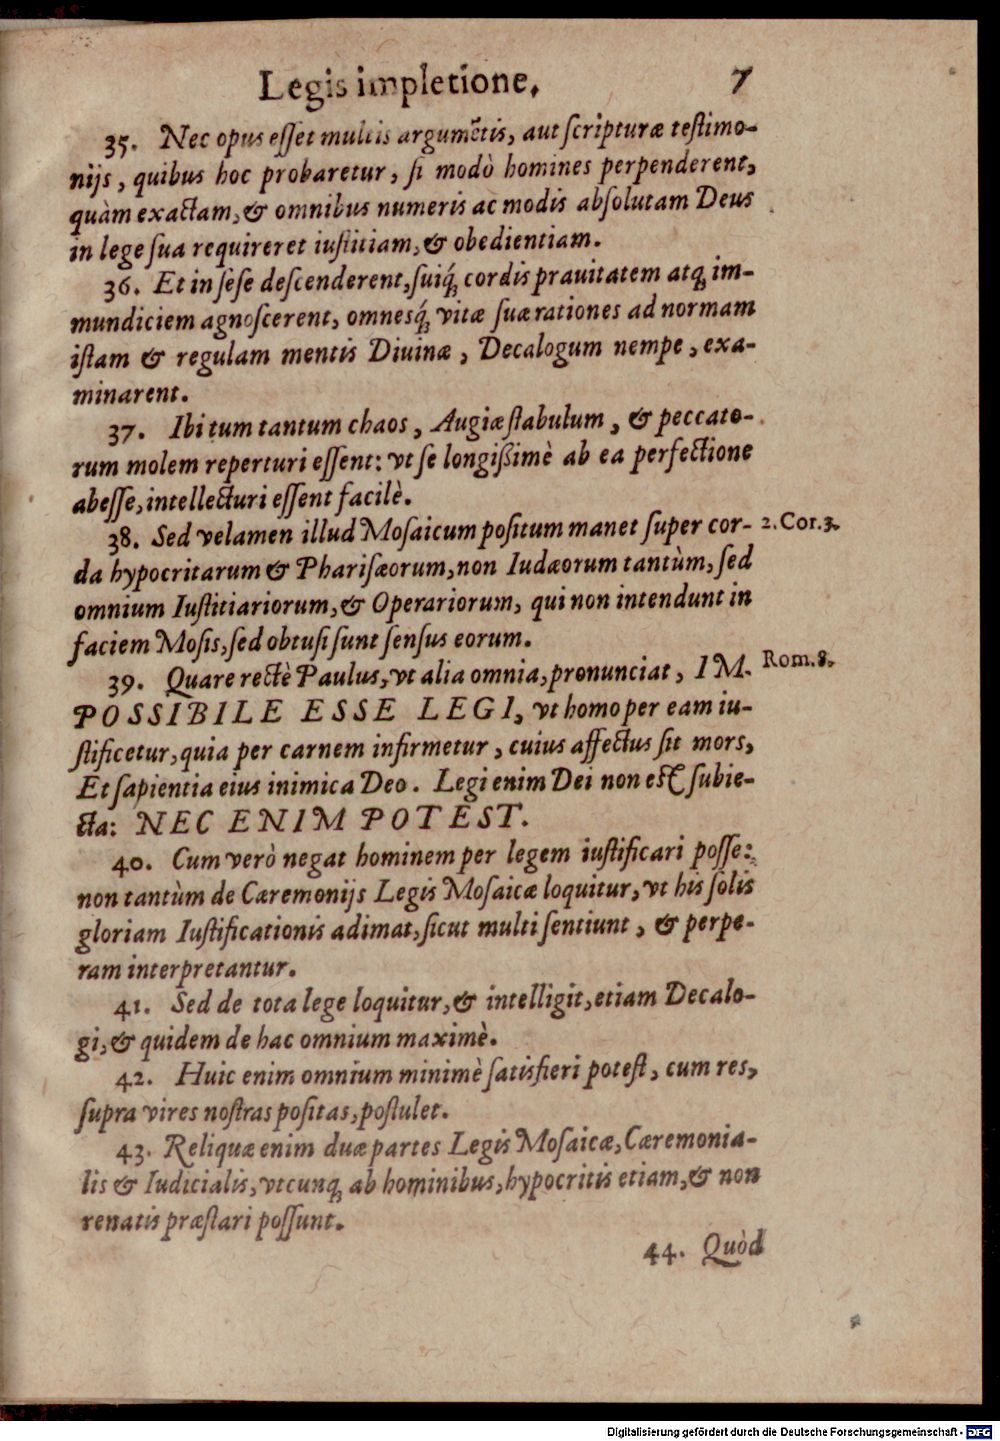 Legis impletione. 7
35. Nec opus eſſet multis argumẽtis, aut ſcripturæ teſtimo-
nijs, quibus hoc probaretur, ſi modò homines perpenderent,
quàm exactam, & omnibus numeris ac modis abſolutam Deus
in lege ſua requireret iuſtitiam, & obedientiam.
36. Et in ſeſe deſcenderent, ſuiq́; cordis prauitatem atq; im-
mundiciem agnoſcerent, omnesq́; vitæ ſuæ rationes ad normam
iſtam & regulam mentis Diuinæ, Decalogum nempe, exa-
minarent.
37. Ibi tum tantum chaos, Augiæ ſtabulum, & peccato-
rum molem reperturi eſſent: vt ſe longißimè ab ea perfectione
abeſſe, intellecturi eſſent facilè.
38. Sed velamen illud Moſaicum poſitum manet ſuper cor- 2. Cor. 3.
da hypocritarum & Phariſæorum, non Iudæorum tantùm, ſed
omnium Iuſtitiariorum, & Operariorum, qui non intendunt in
faciem Moſis, ſed obtuſi ſunt ſenſus eorum.
39. Quare rectè Paulus, vt alia omnia, pronunciat, IM- Rom. 8.
POSSIBILE ESSE LEGI, vt homo per eam iu-
ſtificetur, quia per carnem infirmetur, cuius affectus ſit mors,
Et ſapientia eius inimica Deo. Legi enim Dei non eſt ſubie-
cta: NEC ENIM POTEST.
40. Cum verò negat hominem per legem iuſtificari poſſe:
non tantùm de Cæremonijs Legis Moſaicæ loquitur, vt his ſolis
gloriam Iuſtificationis adimat, ſicut multi ſentiunt, & perpe-
ram interpretantur.
41. Sed de tota lege loquitur, & intelligit, etiam Decalo-
gi, & quidem de hac omnium maximè.
42. Huic enim omnium minimè ſatisfieri poteſt, cum res,
ſupra vires noſtras poſitas, poſtulet.
43. Reliquæ enim duæ partes Legis Moſaicæ, Cæremonia-
lis & Iudicialis, vtcunq; ab hominibus, hypocritis etiam, & non
renatis præſtari poſſunt.
44. Quòd
Digitalisierung gefördert durch die Deutsche Forschungsgemeinschaft - DFG